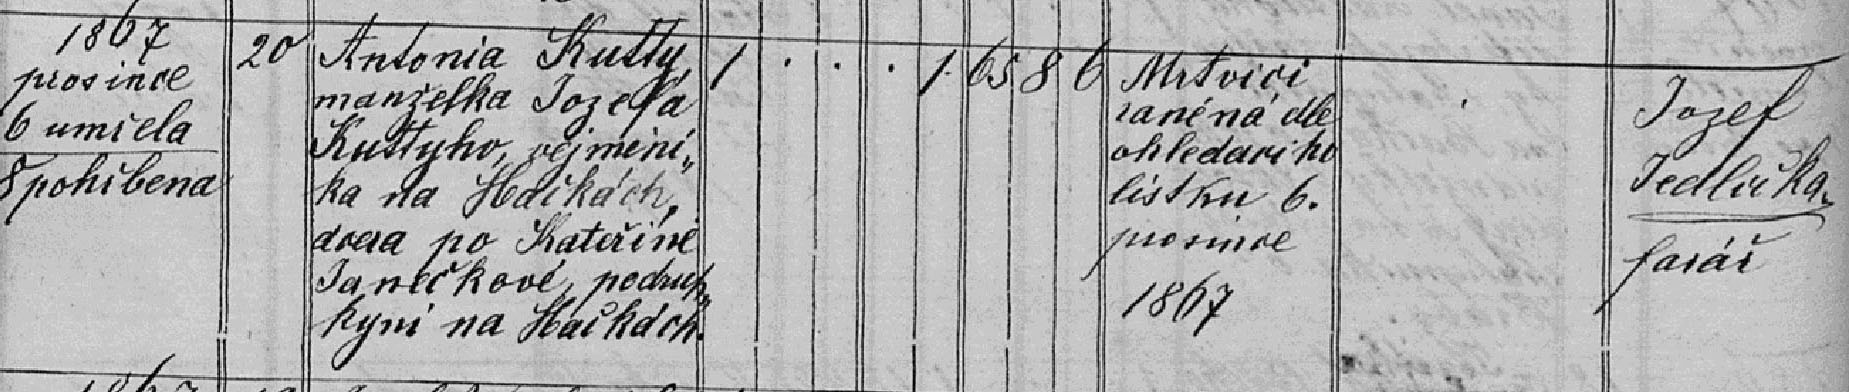 1867
prosince
6 umřela
8 pohřbena
20
Antonia Kutty,
manželka Jozefa
Kuttyho, vejmini„
ka na Hačkách,
dcera po Kateřině
Janečkové, podruh„
kyni na Hačkách.
1 . . . 1. 65 8 6
Mrtvicí
raněná dle
ohledacího
lístku 6.
prosince
1867
Jozef
Jedlička,
farář
1867